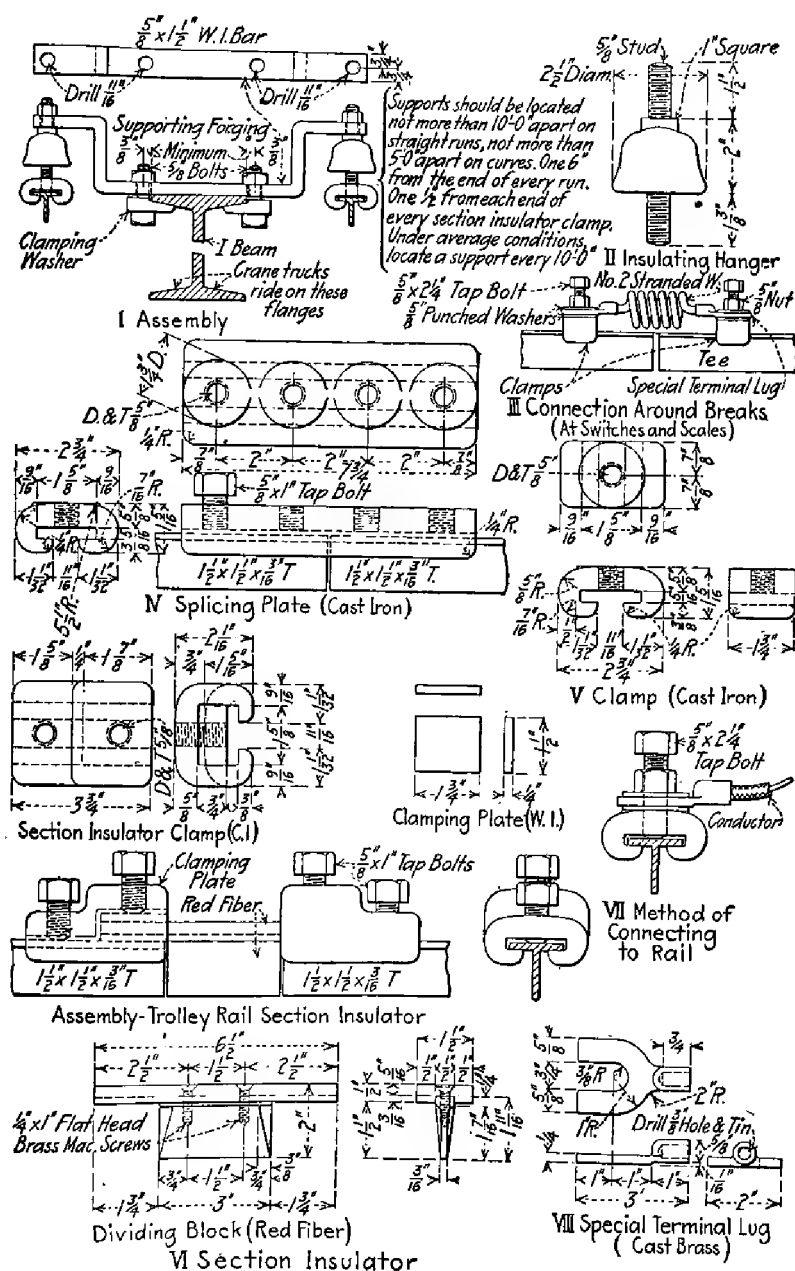 5/8" x 1 1/2" W.I. Bar
3/4" 3/4"
Drill 11/16"
Drill 11/16"
Supporting Forging
3/8" Minimum 3/8"
5/8 Bolts
Clamping
Washer
I Beam
Crane trucks
ride on these
flanges
I Assembly
Supports should be located
not more than 10'-0" apart on
straight runs, not more than
5'-0" apart on curves. One 6"
from the end of every run.
One 1/2 from each end of
every section insulator clamp.
Under average conditions,
locate a support every 10'-0"
5/8" Stud
1" Square
2 1/2" Diam.
1 1/2"
2"
1 3/8"
II Insulating Hanger
5/8" x 2 1/4" Tap Bolt
No. 2 Stranded W.
5/8" Nut
5/8" Punched Washers
Clamps
Tee
Special Terminal Lug
III Connection Around Breaks
(At Switches and Scales)
1 3/4" D.
D.&T. 5/8"
1/4" R.
7/8" 2" 2" 2" 7/8"
7 3/4"
2 3/4"
9/16" 1 5/8" 9/16"
7/16" R.
1/4" R.
1 1/32" 11/16" 1 1/32"
5/8" x 1" Tap Bolt
1/4" R.
1 1/2" x 1 1/2" x 3/16" T
1 1/2" x 1 1/2" x 3/16" T.
IV Splicing Plate (Cast Iron)
D&T 5/8"
7/8" 7/8"
9/16 1 5/8" 9/16
5/8" R.
7/16" R.
1/2" 1 1/32 11/16" 1 1/32"
1/4 R.
2 3/4"
1 3/4"
V Clamp (Cast Iron)
5 1/2" R.
1 5/8" 1/4" 1 7/8"
D & T 5/8"
3 3/4"
2 1/16"
3/4" 1 5/16"
9/16" 1 5/8" 9/16
1 1/32" 11/16" 1 1/32"
5/8" 3/4" 3/8"
Section Insulator Clamp (C.I.)
1 1/2"
1 3/4" 1/4"
Clamping Plate (W.I.)
5/8" x 2 1/4"
Tap Bolt
Conductor
VII Method of
Connecting
to Rail
Clamping
Plate
Red Fiber
5/8" x 1" Tap Bolts
1 1/2" x 1 1/2" x 3/16" T
1 1/2 x 1 1/2 x 3/16 T
Assembly-Trolley Rail Section Insulator
6 1/2"
2 1/2" 1 1/2" 2 1/2"
1/4" x 1" Flat Head
Brass Mac. Screws
2"
3/4" 1 1/2" 3/4" 3/8"
1 3/4" 3" 1 3/4"
1 1/2"
1/2" 1/2" 1/2"
1/2" 5/16"
1 1/2" 5/16"
1/4
1 7/16" 1 5/16"
3/16"
Dividing Block (Red Fiber)
VI Section Insulator
5/8" 3/4" 5/8"
3/8 R
3/4"
2" R.
1" R.
Drill 3/8" Hole & Tin
1/4"
5/8"
1/16"
1" 1" 1"
3"
2"
VIII Special Terminal Lug
(Cast Brass)